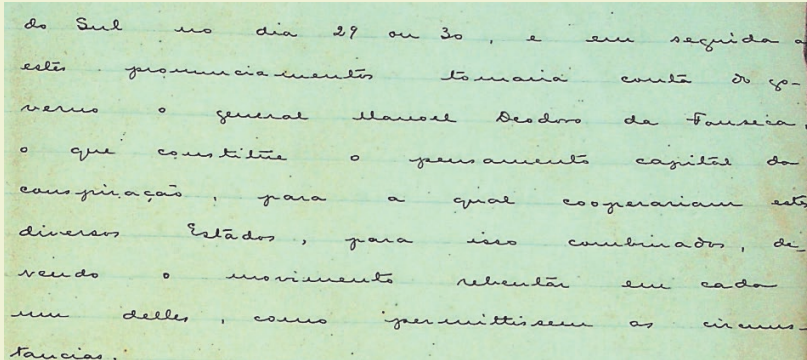 do Sul no dia 29 ou 30, e em seguida a
estes pronunciamentos tomaria conta do go-
verno o general Manoel Deodoro da Fonseca,
o que constitúe o pensamento capital da
conspiração, para a qual cooperariam estes
diversos Estados, para isso combinados, de-
vendo o movimento rebentar em cada
um delles, como permittissem as circums-
tancias.